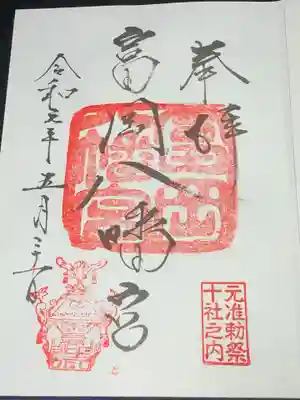 奉拝
富岡八幡宮
令和元年五月
元准勅祭
十社之内